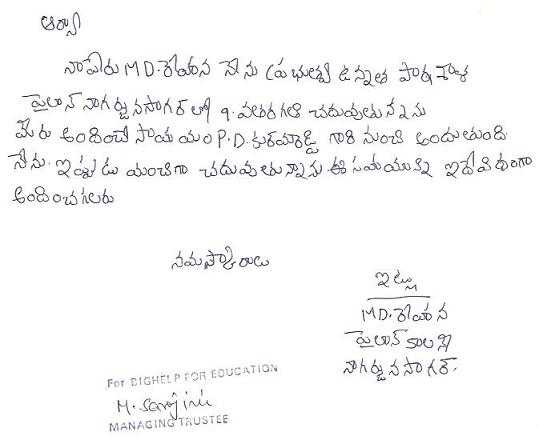 ఆర్యా
నాపేరు MD.రేహాన నేను ప్రభుత్వ ఉన్నత పాఠశాల
పైలాన్ నాగార్జునసాగర్ లో 9.వతరగతి చదువుతున్నాను
మీరు అందించే సాయం P.D. గారి నుంచి అందుతుంది
నేను. ఇప్పుడు మంచిగా చదువుతున్నాను ఈ సహాయాన్ని ఇదేవిధంగా
అందించగలరు
నమస్కారాలు
ఇట్లు
MD.రేహాన
పైలాన్ కాలనీ
నాగార్జునసాగర్.
For BIGHELP FOR EDUCATION
M. Sarojini
MANAGING TRUSTEE